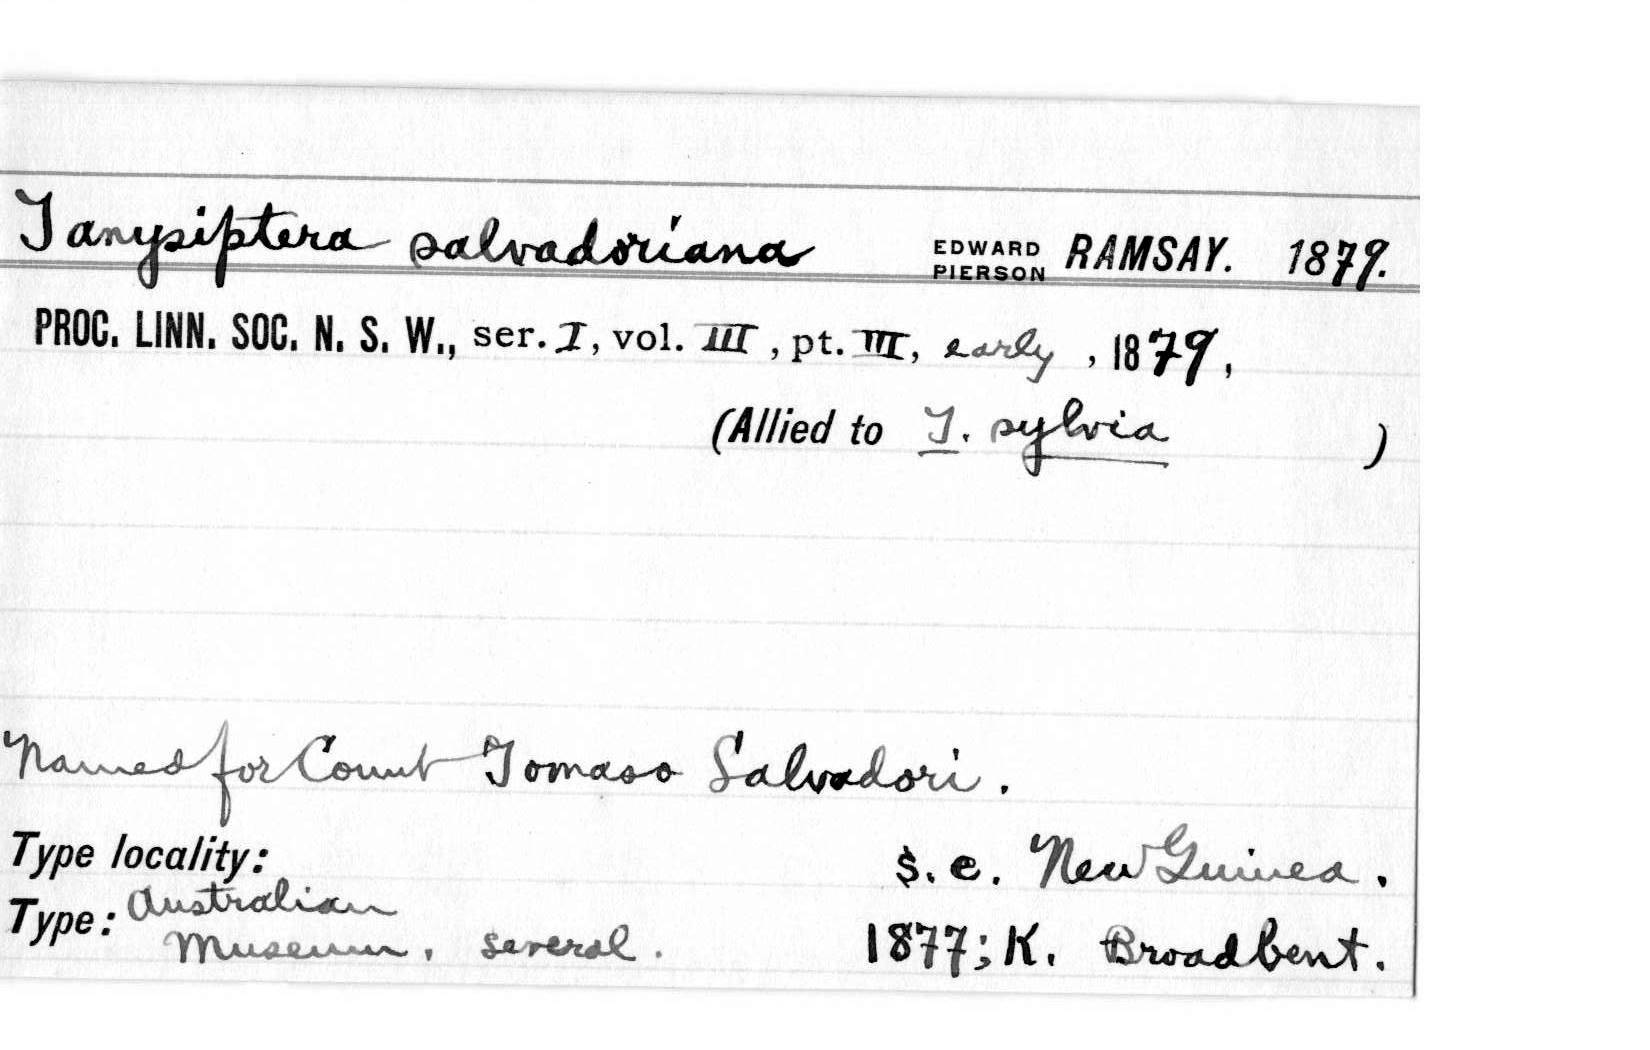 Tanysiptera salvadoriana EDWARD PIERSON RAMSAY. 1879.
PROC. LINN. SOC. N. S. W., ser. I, vol. III, pt. III, early, 1879,
(Allied to T. sylvia )
Named for Count Tomaso Salvadori.
Type locality: S. e. New Guinea.
Type: Australian Museum, several. 1877; K. Broadbent.